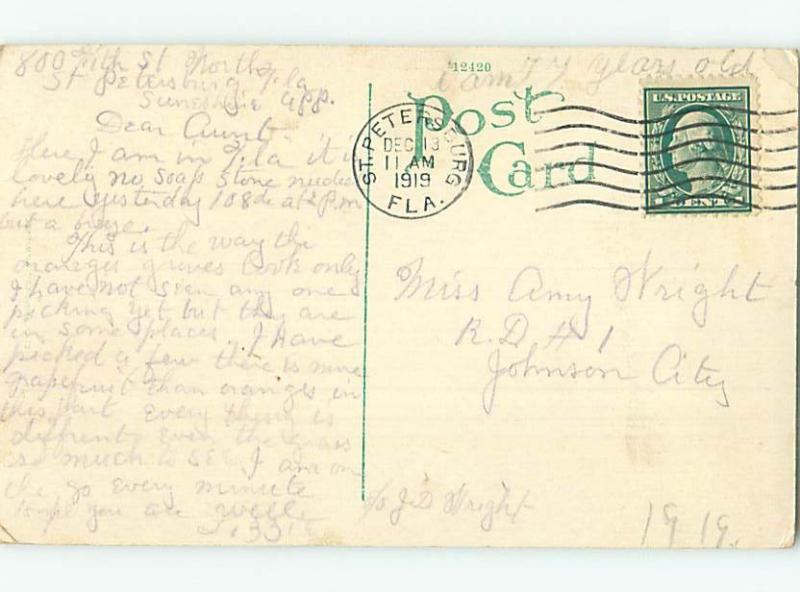 800 11th St North
St Petersburg Fla
Sunshine App.
Dear Aunt
Here I am in Fla it is
lovely no soap stone needed
here yesterday 108de at 2 Pm
but a breeze.
This is the way the
oranges groves look only
I have not seen any one
picking yet but they are
in some places. I have
picked a few there is more
grapefruit than oranges in
this part every thing is
different even the grass
so much to see I am on
the go every minute
hope you are well
A12420
I am 77 years old
Post
Card
ST. PETERSBURG
DEC 13
11 AM
1919
FLA.
U.S. POSTAGE
Miss Amy Wright
R.D # 1
Johnson City
c/o J.D Wright
1919.